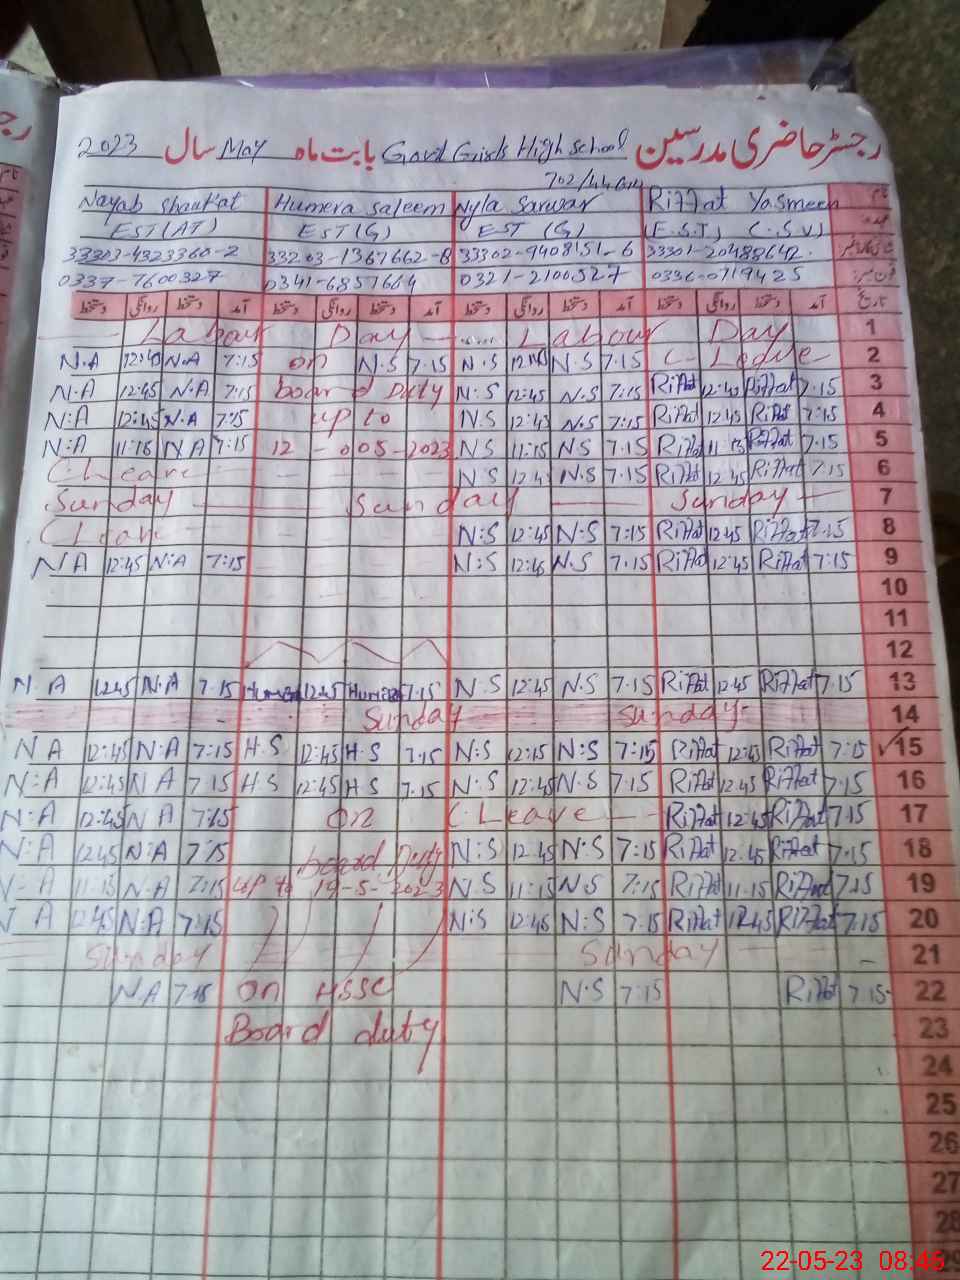 رجسٹر حاضری مدرسین Govt Girls High School بابت ماہ May سال 2023
702/44 GB
Nayab Shaukat Humera Saleem Nyla Sarwar Riffat Yasmeen
EST (AT) EST (G) EST (G) (E.S.T) (C.S.V)
33303-4323360-2 33203-1367662-8 33302-9408151-6 33301-20488642
0337-7600327 0341-6857664 0321-2100527 0336-0719425
دستخط روانگی دستخط آمد دستخط روانگی دستخط آمد دستخط روانگی دستخط آمد دستخط روانگی دستخط آمد تاریخ
Labour Day Labour Day 1
N.A 12:45 N.A 7:15 on N.S 7.15 N.S 12:45 N.S 7:15 C- Leave 2
N:A 12:45 N.A 7:15 board Duty N:S 12:45 N.S 7:15 Riffat 12:45 Riffat 7.15 3
N:A 12:45 N:A 7:15 up to N.S 12:45 N.S 7:15 Riffat 12:45 Riffat 7:15 4
N:A 11:15 N A 7:15 12 - 005-2023 N S 11:15 N S 7.15 Riffat 11:15 Riffat 7.15 5
C Leave N S 12:45 N S 7.15 Riffat 12:45 Riffat 7.15 6
Sunday Sunday Sunday 7
C Leave N:S 12:45 N:S 7:15 Riffat 12:45 Riffat 7.15 8
NA 12:45 N:A 7:15 N:S 12:45 N.S 7.15 Riffat 12:45 Riffat 7:15 9
10
11
12
N.A 12:45 N.A 7.15 Humera 12:45 Humera 7.15 N.S 12:45 N.S 7.15 Riffat 12:45 Riffat 7.15 13
Sunday Sunday 14
N A 12:45 N:A 7:15 H.S 12:45 H.S 7.15 N:S 12:15 N:S 7:15 Riffat 12:45 Riffat 7:15 15
N:A 12:45 N A 7.15 H.S 12:45 H S 7.15 N:S 12:45 N.S 7.15 Riffat 12:45 Riffat 7:15 16
N:A 12:45 N A 7:15 on C Leave Riffat 12:45 Riffat 7.15 17
N:A 12.45 N:A 7:15 board Duty N:S 12.45 N:S 7:15 Riffat 12.45 Riffat 7:15 18
N-A 11:15 N.A 7:15 up to 19-5-2023 N.S 11:15 N.S 7:15 Riffat 11.15 Riffat 7.15 19
N A 12:45 N:A 7:15 N:S 12:45 N:S 7.15 Riffat 12.45 Riffat 7.15 20
Sunday Sunday 21
N A 7:15 on HSSC N.S 7:15 Riffat 7.15 22
Board duty 23
24
25
26
27
28
29
22-05-23 08:45